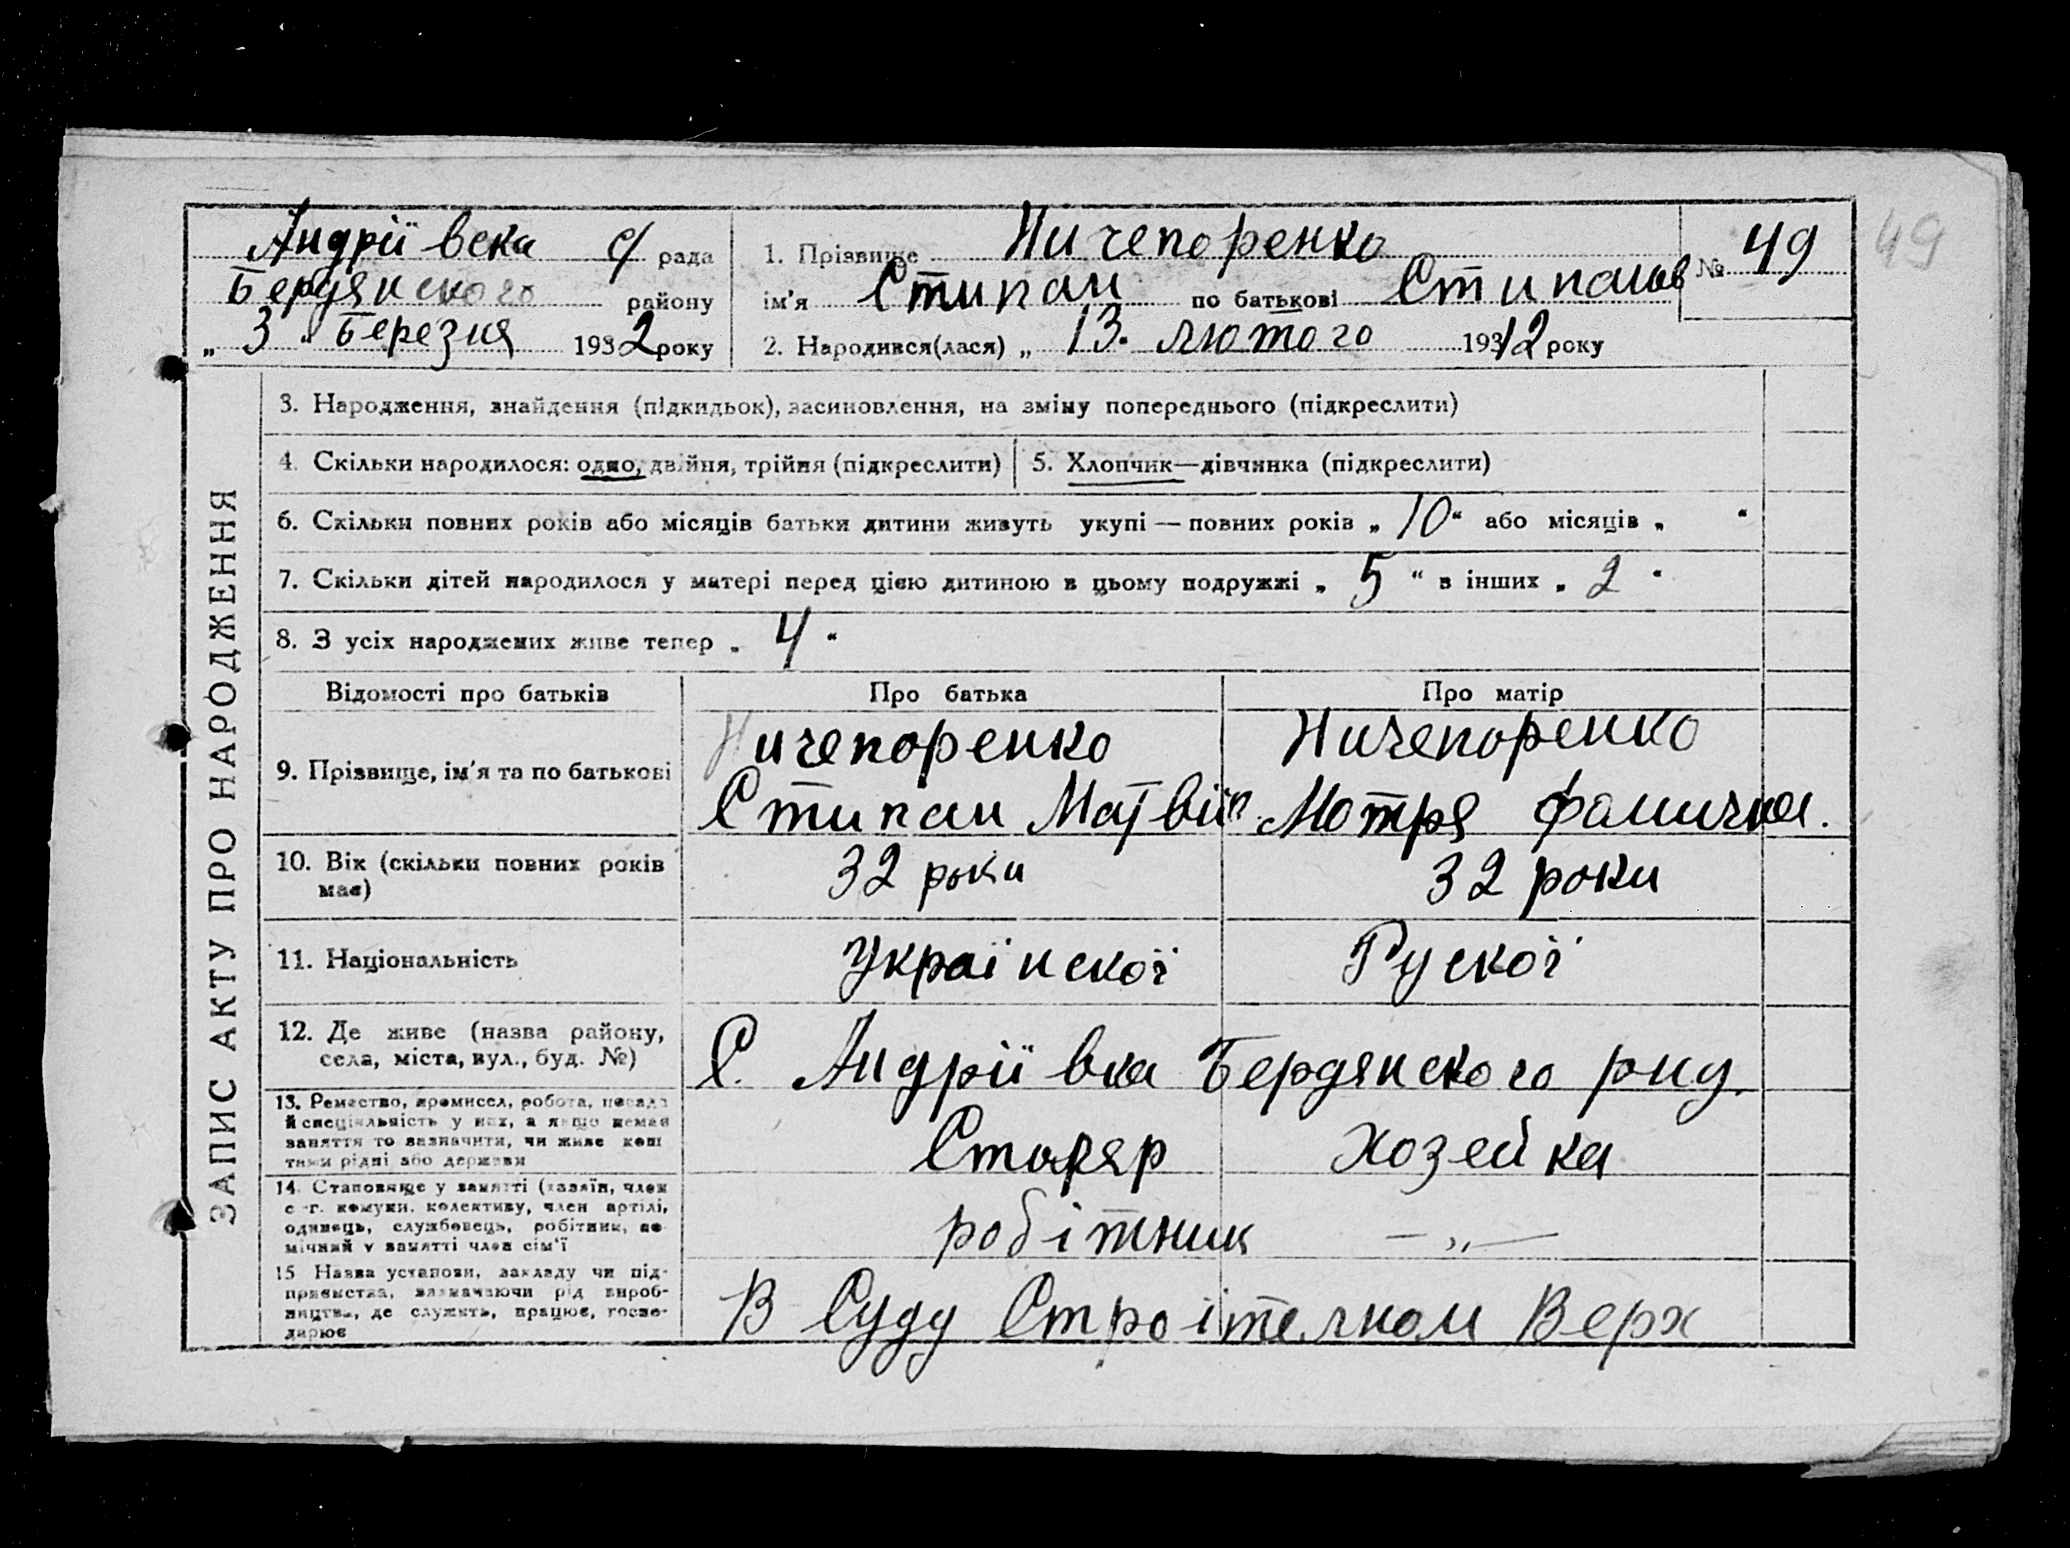 Андріївска с/ рада
Бердянского району
„ 3 " Березня 1932 року
1. Прізвище Ничепоренко
ім'я Стипан по батькові Стипанов
2. Народився(лася) „ 13. лютого 1932 року
№ 49
49
ЗАПИС АКТУ ПРО НАРОДЖЕННЯ
3. Народження, знайдення (підкидьок), засиновлення, на зміну попереднього (підкреслити)
4. Скільки народилося: одно, двійня, трійня (підкреслити)
5. Хлопчик—дівчинка (підкреслити)
6. Скільки повних років або місяців батьки дитини живуть укупі — повних років „ 10 " або місяців „ "
7. Скільки дітей народилося у матері перед цією дитиною в цьому подружжі „ 5 " в інших „ 2 "
8. З усіх народжених живе тепер „ 4 "
Відомості про батьків
Про батька
Про матір
9. Прізвище, ім'я та по батькові
Ничепоренко
Стипан Матвій
Ничепоренко
Мотря Фомична.
10. Вік (скільки повних років
має)
32 роки
32 роки
11. Національність
Україиской
Руской
12. Де живе (назва району,
села, міста, вул., буд. №)
С. Андріївка Бердянского рид.
13. Ремество, промисел, робота, посада
й спеціяльність у них, а якщо немає
заняття то зазначити, чи живе кош
тами рідні або держави
Столяр
Хозейка
14. Становище у занятті (хазяїн, член
с.-г. комуни, колективу, член артілі,
одинець, службовець, робітник, по-
мічний у занятті член сім'ї
робітник
— „ —
15 Назва установи, закладу чи під-
приємства, зазначаючи рід вироб-
ництва, де служить, працює, госпо-
дарює
В Суду Строітелном Верх